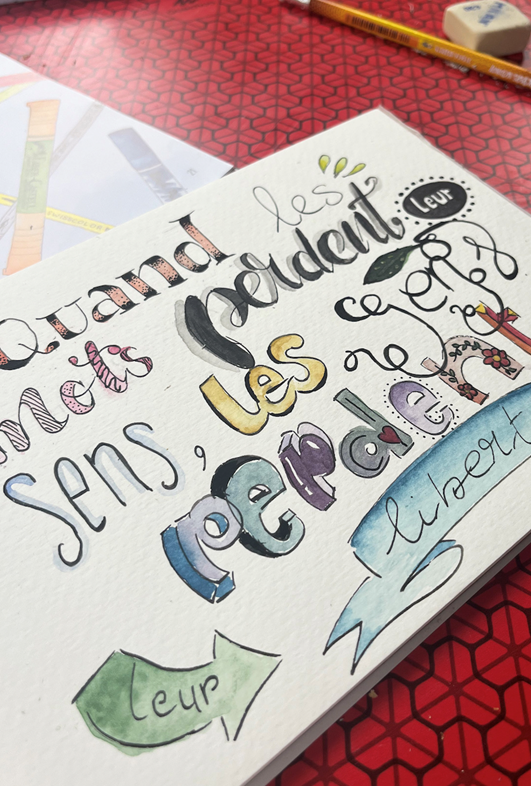 Quand les
mots perdent Leur
sens, les gens
perdent
leur libert